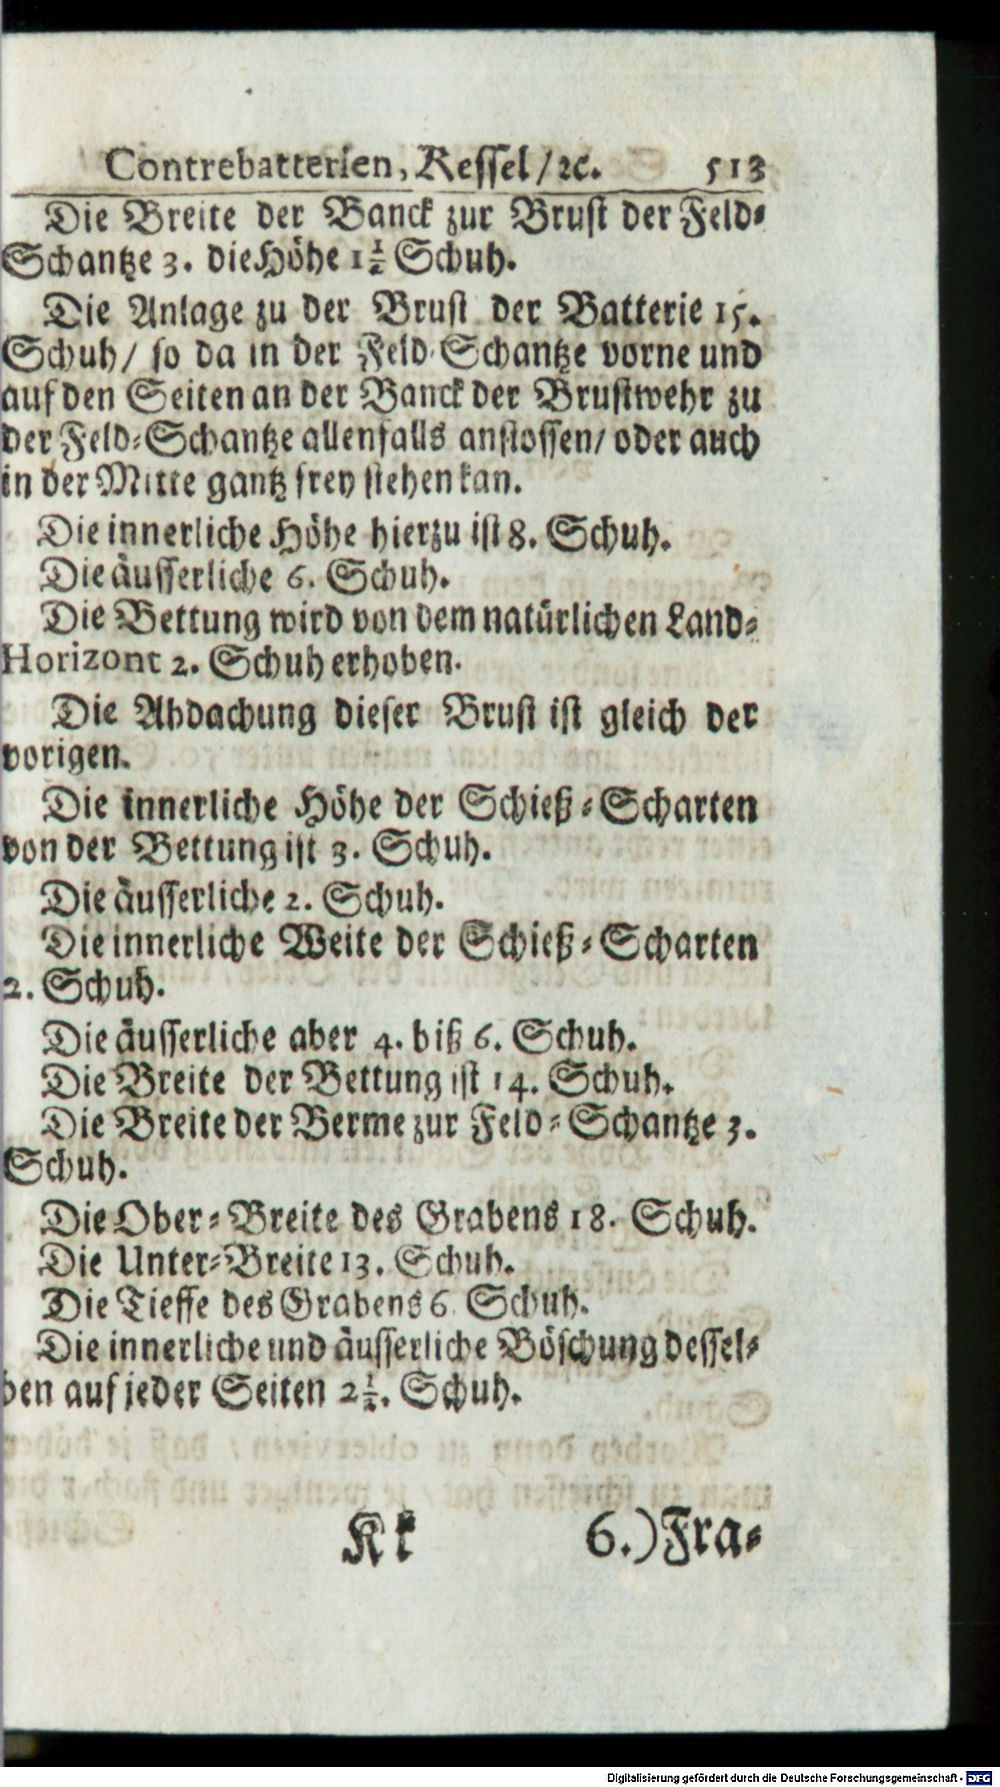 Contrebatterien, Kessel / ꝛc. 513
Die Breite der Banck zur Brust der Feld-
Schantze 3. die Höhe 1 1/2 Schuh.
Die Anlage zu der Brust der Batterie 15.
Schuh / so da in der Feld-Schantze vorne und
auf den Seiten an der Banck der Brustwehr zu
der Feld-Schantze allenfalls anstossen / oder auch
in der Mitte gantz frey stehen kan.
Die innerliche Höhe hierzu ist 8. Schuh.
Die äusserliche 6. Schuh.
Die Bettung wird von dem natürlichen Land-
Horizont 2. Schuh erhoben.
Die Abdachung dieser Brust ist gleich der
vorigen.
Die innerliche Höhe der Schieß-Scharten
von der Bettung ist 3. Schuh.
Die äusserliche 2. Schuh.
Die innerliche Weite der Schieß-Scharten
2. Schuh.
Die äusserliche aber 4. biß 6. Schuh.
Die Breite der Bettung ist 14. Schuh.
Die Breite der Berme zur Feld-Schantze 3.
Schuh.
Die Ober-Breite des Grabens 18. Schuh.
Die Unter-Breite 13. Schuh.
Die Tieffe des Grabens 6 Schuh.
Die innerliche und äusserliche Böschung dessel-
ben auf jeder Seiten 2 1/2. Schuh.
Kk 6.) Fra-
Digitalisierung gefördert durch die Deutsche Forschungsgemeinschaft - DFG